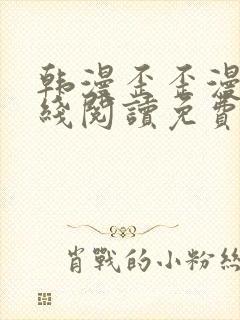 韩漫歪歪漫
綫閱讀免費
肖戰的小粉絲